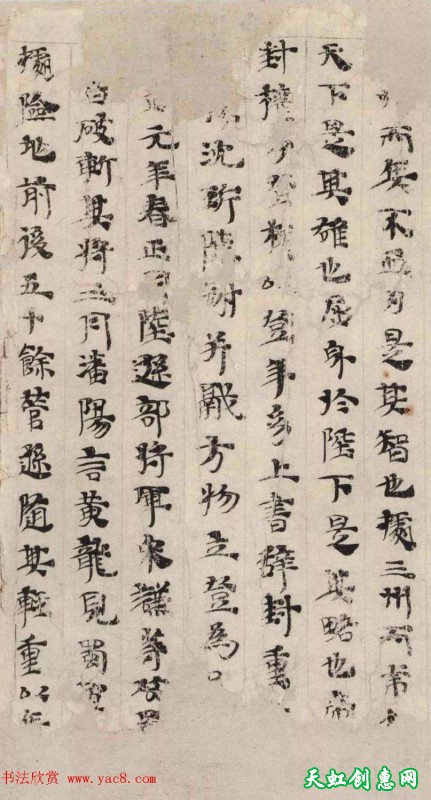 而兵不血刃是其智也據三州
天下是其雄也屈身於陛下是其略也
封權子登權以登年少上書辭封重
沈珩陳謝并獻方物立登為
元年春正月陸遜部將軍宋謙等攻蜀
皆破斬其將三月潘陽言黃龍見蜀軍
據險地前後五十餘營遜隨其輕重以
书法欣赏 www.yac8.com
天虹创意网